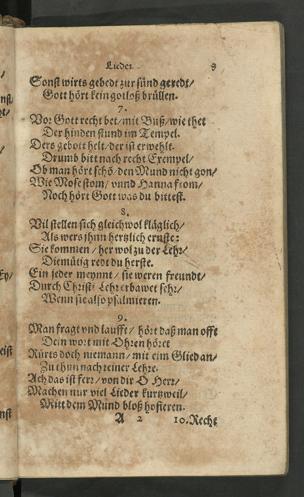 Lieder. 9
Sonst wirts gebedt zur sünd geredt/
Gott hört kein gotloß brüllen.
7.
Vor Gott recht bet/ mit Buß/ wie thet
Der hinden stund im Tempel.
Ders gebott helt/ der ist erwehlt.
Drumb bitt nach recht Exempel/
Ob man hört schö/ den Mund nicht gon/
Wie Mose stom/ vnnd Hanna from/
Noch hört Gott was du bittest.
8.
Vil stellen sich gleich wol kläglich/
Als wers jhnn hertzlich ernste:
Sie kommen/ her wol zu der Lehr/
Diemütig redt du herste.
Ein jeder meynnt/ sie weren freundt/
Durch Christi Lehr erbawet sehr/
Wenn sie also psalmieren.
9.
Man fragt vnd laufft/ hört daß man offt
Dein wort mit Ohren höret
Rürts doch niemann/ mit eim Glied an/
Zu thun nach reiner Lehre.
Ach das ist ferr/ von dir O Herr/
Machen nur viel Lieder kurtzweil/
Mitt dem Mund bloß hofieren.
A 2 10. Recht